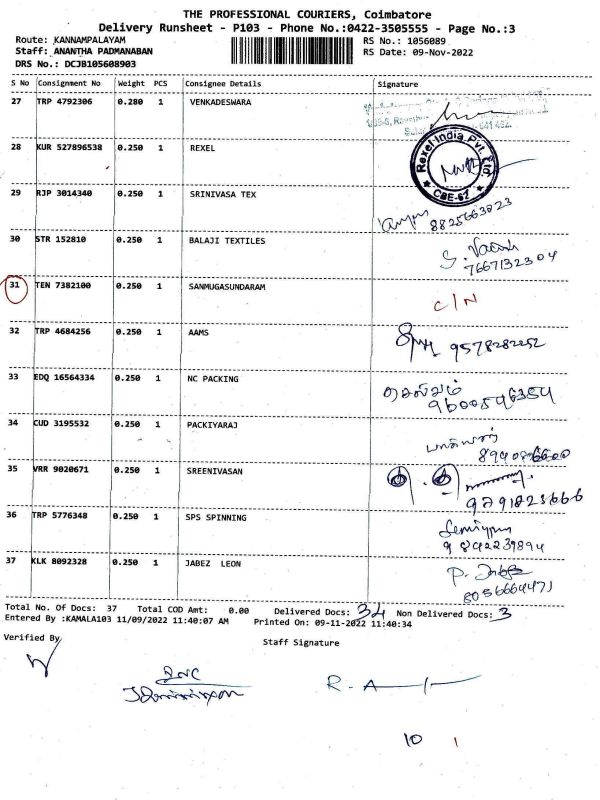 THE PROFESSIONAL COURIERS, Coimbatore
Delivery Runsheet - P103 - Phone No.:0422-3505555 - Page No.:3
Route: KANNAMPALAYAM
RS No.: 1056089
Staff: ANANTHA PADMANABAN
RS Date: 09-Nov-2022
DRS No.: DCJB105608903
S No Consignment No Weight PCS Consignee Details Signature
27 TRP 4792306 0.280 1 VENKADESWARA
28 KUR 527896538 0.250 1 REXEL
Rexel India Pvt. Ltd. ★ CBE-62 ★
29 RJP 3014340 0.250 1 SRINIVASA TEX
8825663023
30 STR 152810 0.250 1 BALAJI TEXTILES
7667132304
31 TEN 7382100 0.250 1 SANMUGASUNDARAM C/N
32 TRP 4684256 0.250 1 AAMS
9578282252
33 EDQ 16564334 0.250 1 NC PACKING
செல்வம்
9600546354
34 CUD 3195532 0.250 1 PACKIYARAJ
35 VRR 9020671 0.250 1 SREENIVASAN
9791823666
36 TRP 5776348 0.250 1 SPS SPINNING
9842239894
37 KLK 8092328 0.250 1 JABEZ LEON
8056664471
Total No. Of Docs: 37 Total COD Amt: 0.00 Delivered Docs: 34 Non Delivered Docs: 3
Entered By :KAMALA103 11/09/2022 11:40:07 AM Printed On: 09-11-2022 11:40:34
Verified By
Staff Signature
R. A
10 1